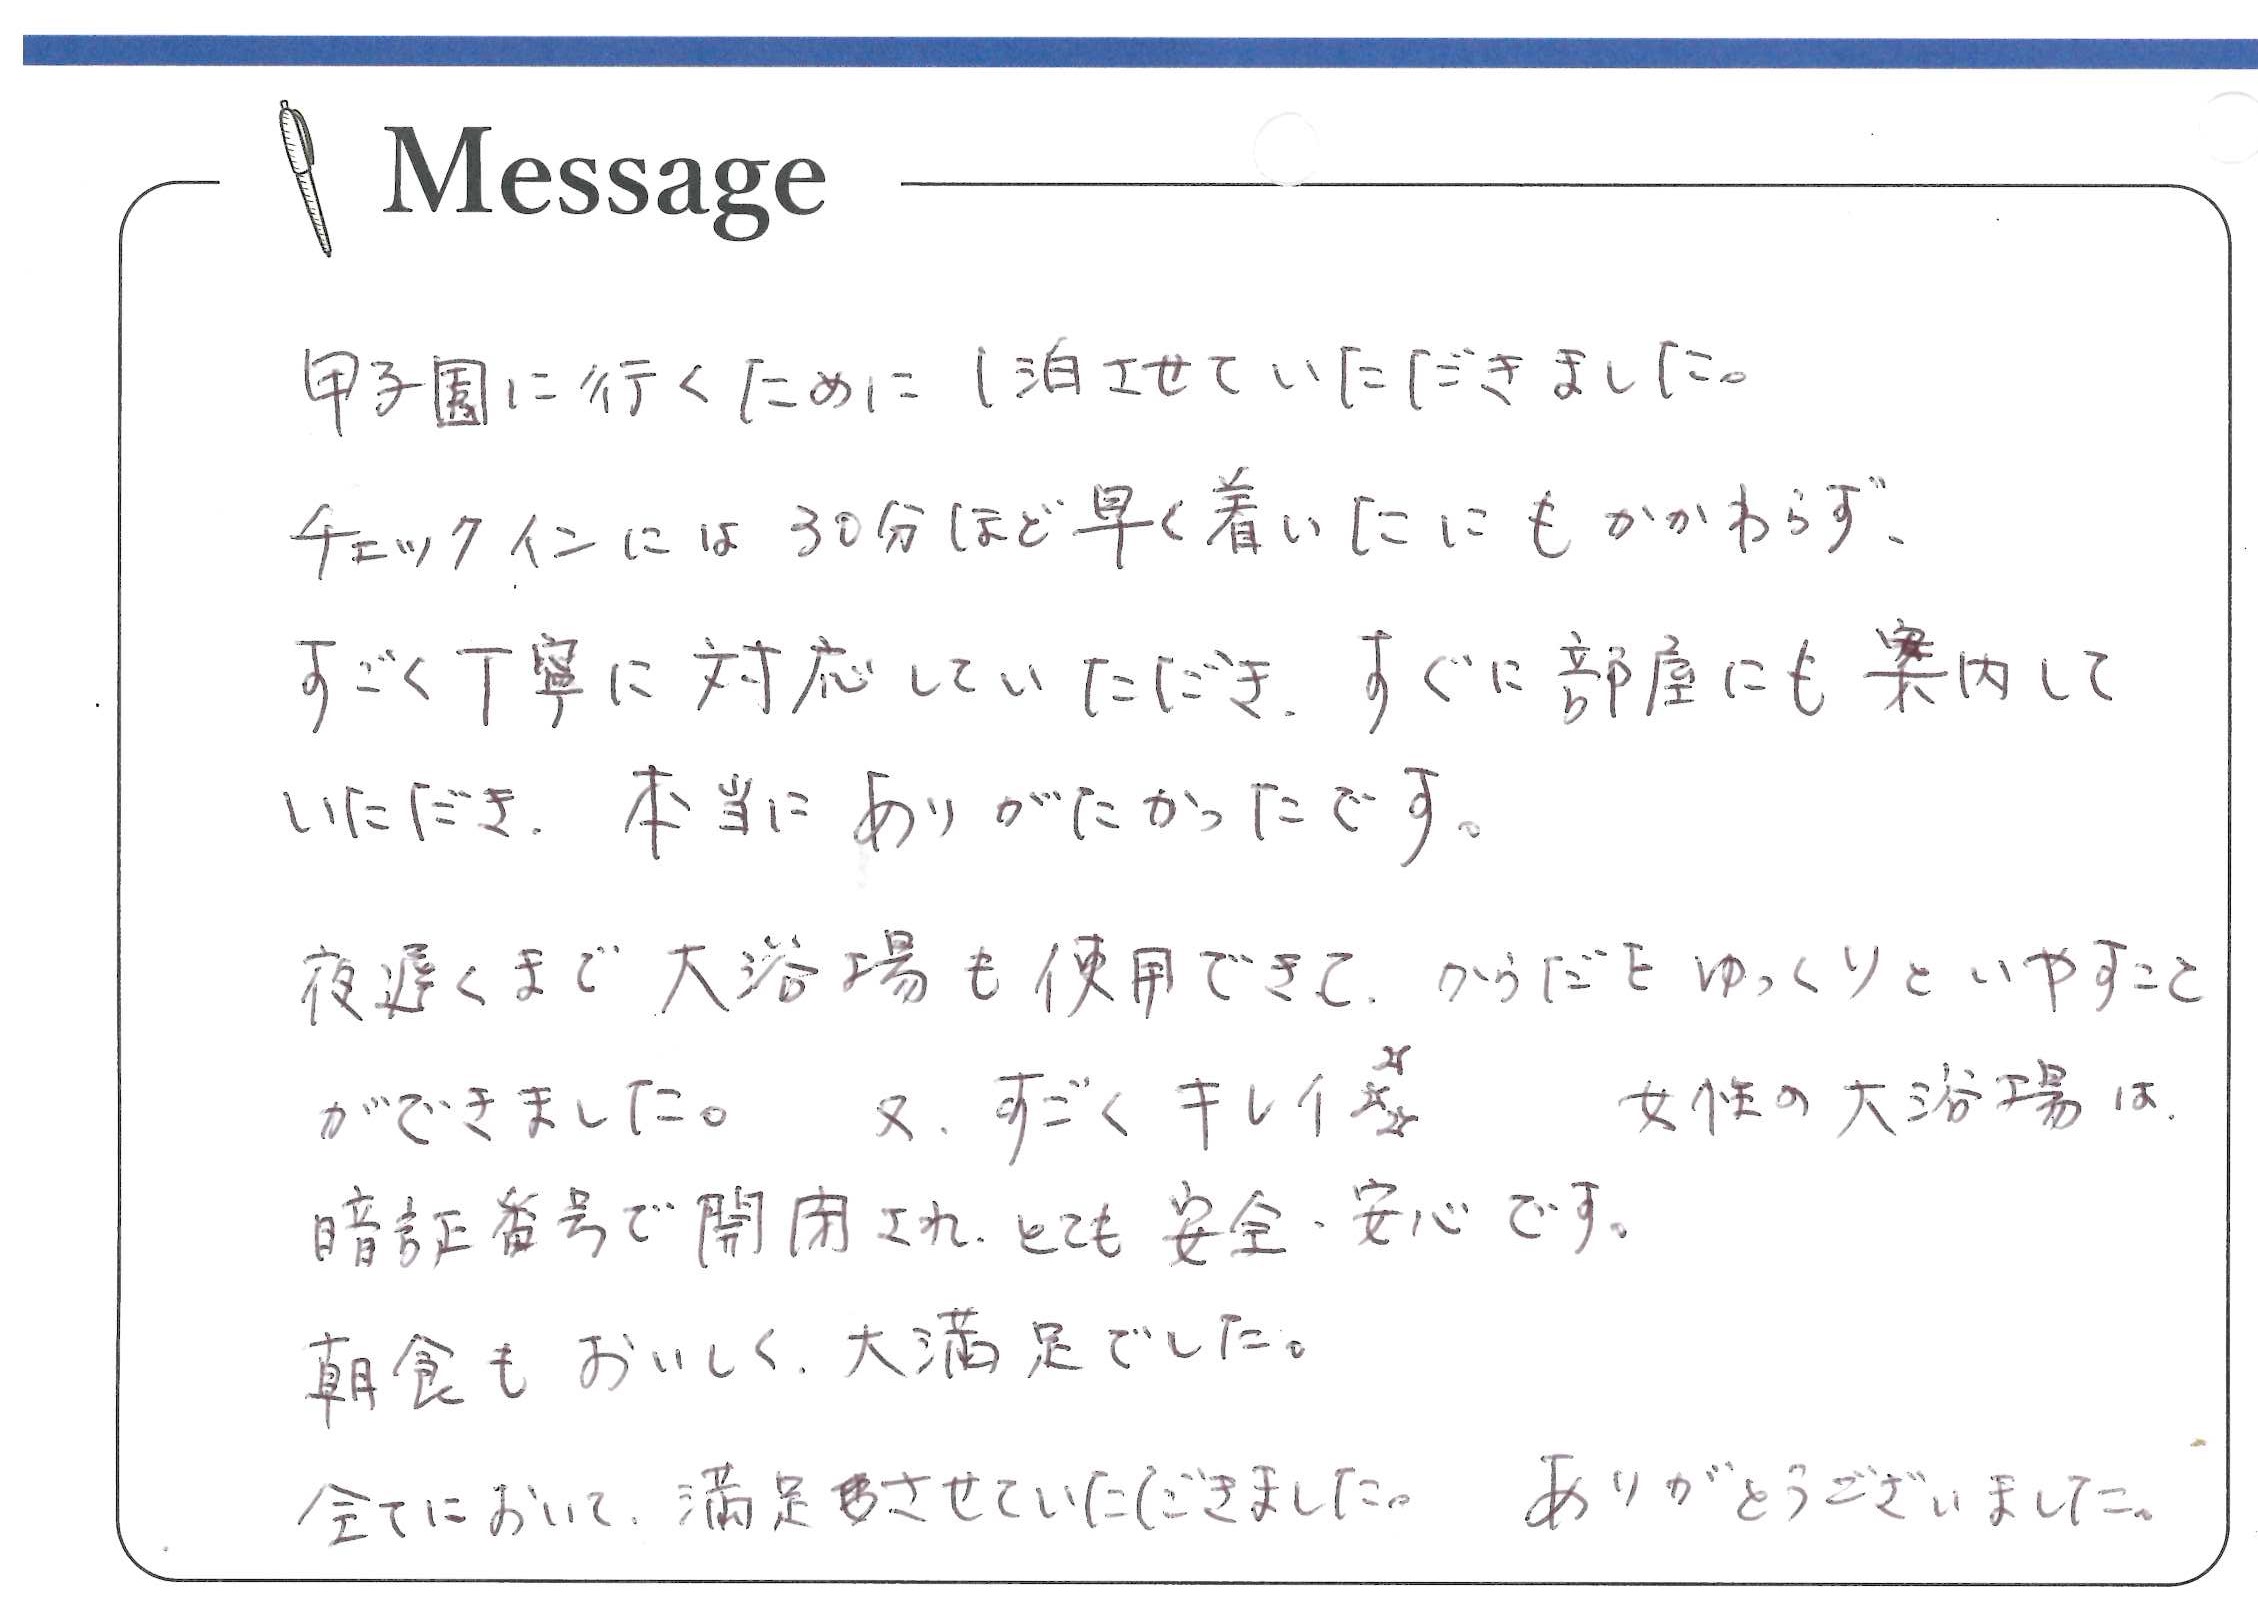 Message
甲子園に行くために1泊させていただきました。
チェックインには30分ほど早く着いたにもかかわらず、
すごく丁寧に対応していただき、すぐに部屋にも案内して
いただき、本当にありがたかったです。
夜遅くまで大浴場も使用できて、からだをゆっくりといやすこと
ができました。 又、すごくキレイ 女性の大浴場は、
暗証番号で開閉され、とても安全・安心です。
朝食もおいしく、大満足でした。
全てにおいて、満足させていただきました。 ありがとうございました。